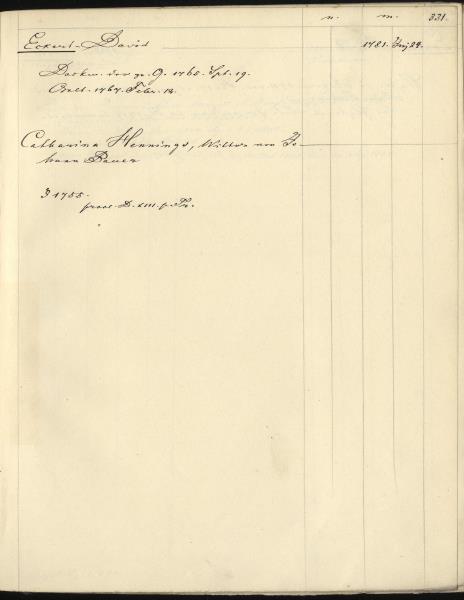 n. m. 331.
Eckert. David 1781. Juj 29.
Dockm. der gr. G. 1760. Spt. 19.
1767. Febr. 14.
Catharina Hennings, Wittwe von Jo-
hann Bauer
1755.
procl. D. XIII. p. Tr.